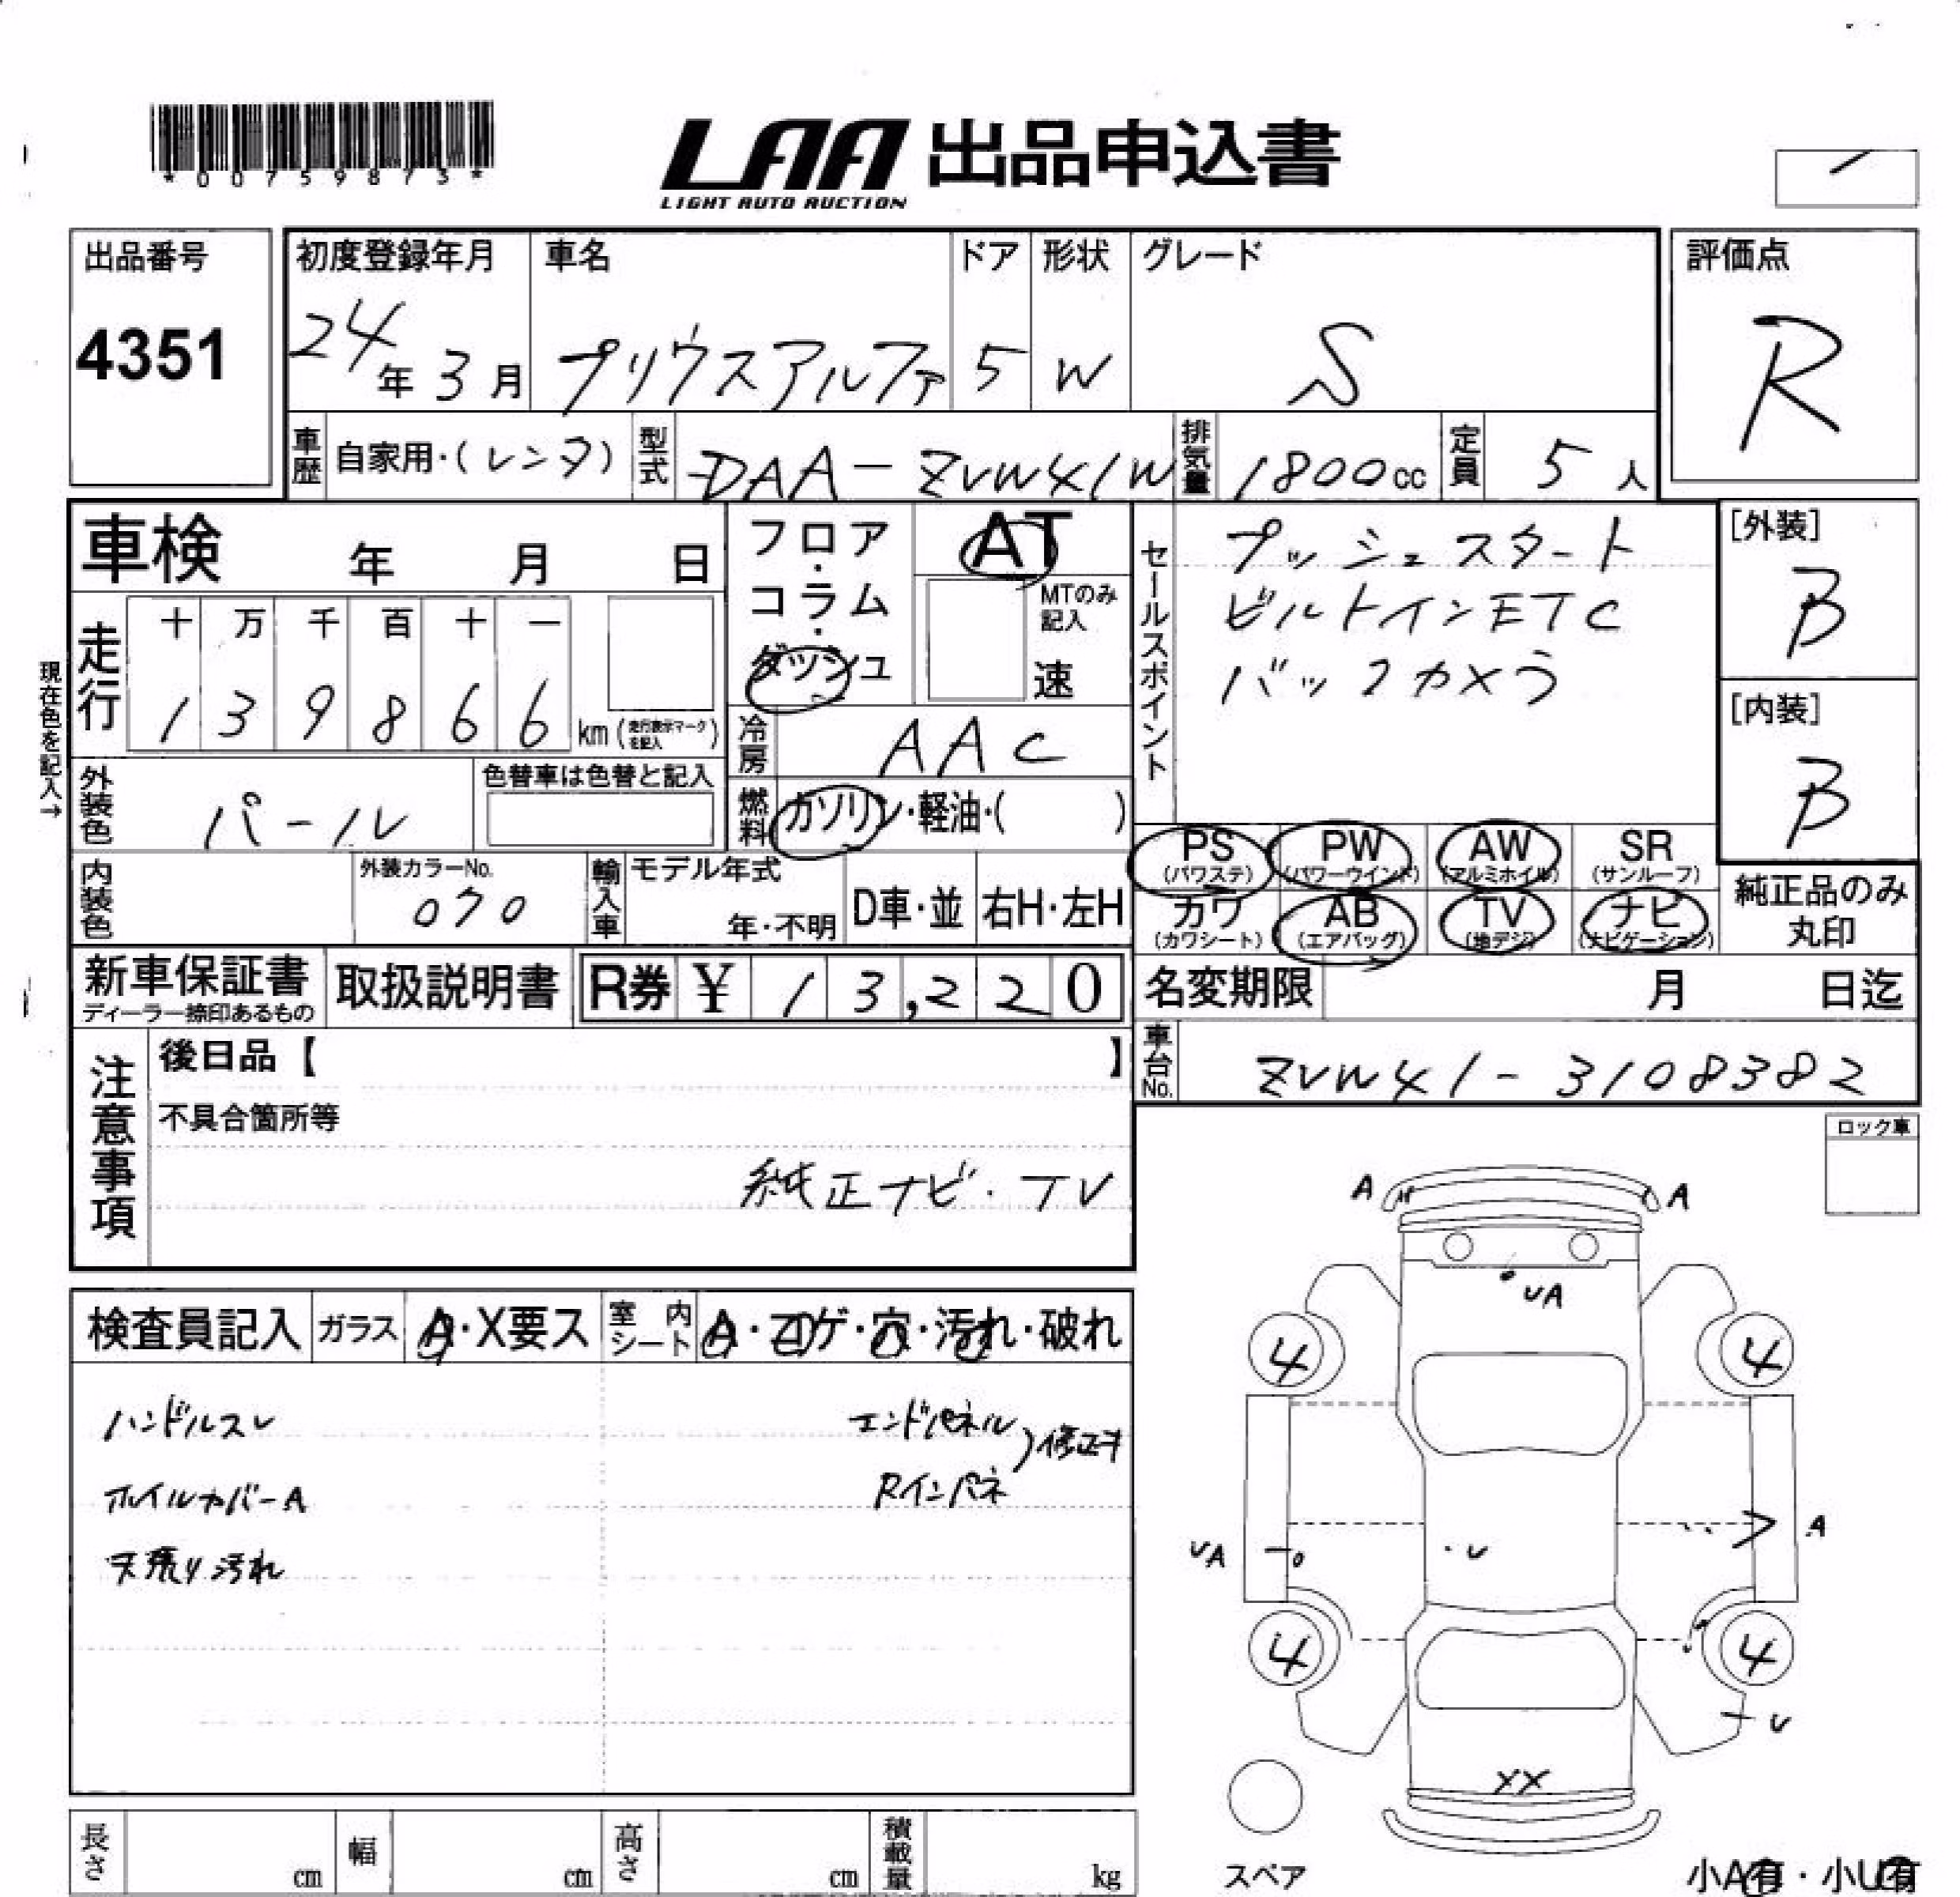 *00759873*
LAA 出品申込書
LIGHT AUTO AUCTION
出品番号
4351
初度登録年月
24年3月
車名
プリウスアルファ
ドア
5
形状
W
グレード
S
評価点
R
車歴
自家用・(レンタ)
型式
DAA-ZVW41W
排気量
1800cc
定員
5人
車検 年 月 日
フロア・コラム・ダッシュ
AT
MTのみ記入
速
セールスポイント
プッシュスタート
ビルトインETC
バックカメラ
[外装]
B
[内装]
B
現在色を記入→
走行
十 万 千 百 十 一
1 3 9 8 6 6 km(走行表示マークを記入)
冷房
AAC
外装色
パール
色替車は色替と記入
燃料
ガソリン・軽油・( )
PS (パワステ)
PW (パワーウインド)
AW (アルミホイル)
SR (サンルーフ)
カワ (カワシート)
AB (エアバッグ)
TV (地デジ)
ナビ (ナビゲーション)
純正品のみ
丸印
内装色
外装カラーNo.
070
輸入車
モデル年式
年・不明
D車・並
右H・左H
新車保証書
ディーラー捺印あるもの
取扱説明書
R券 ¥ 13,220
名変期限 月 日迄
車台No.
ZVW41-3108382
注意事項
後日品【 】
不具合箇所等
純正ナビ・TV
ロック車
検査員記入
ガラス
A・X要ス
室内シート
A・コゲ・穴・汚れ・破れ
ハンドルスレ
ホイルカバーA
天張り汚れ
エンドパネル
Rインパネ
)修正キ
A A
UA
4 4
UA U A
4 4
U
XX
スペア
小A有・小U有
長さ cm
幅 cm
高さ cm
積載量 kg